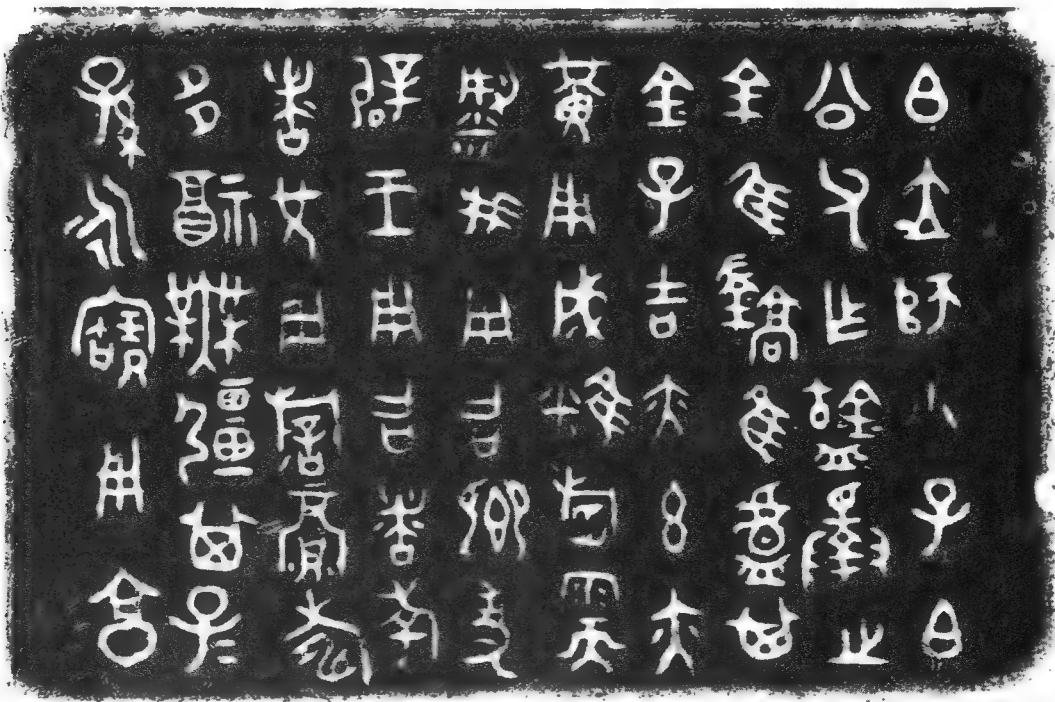 白大師小子白
公父乍𠤳擇之
金隹鐈隹盧其
金孔吉亦玄亦
黃用成糕稻需
梁我用召卿事
辟王用召者考
者兄用旂眉壽
多福無彊其子=
孫=永寶用亯